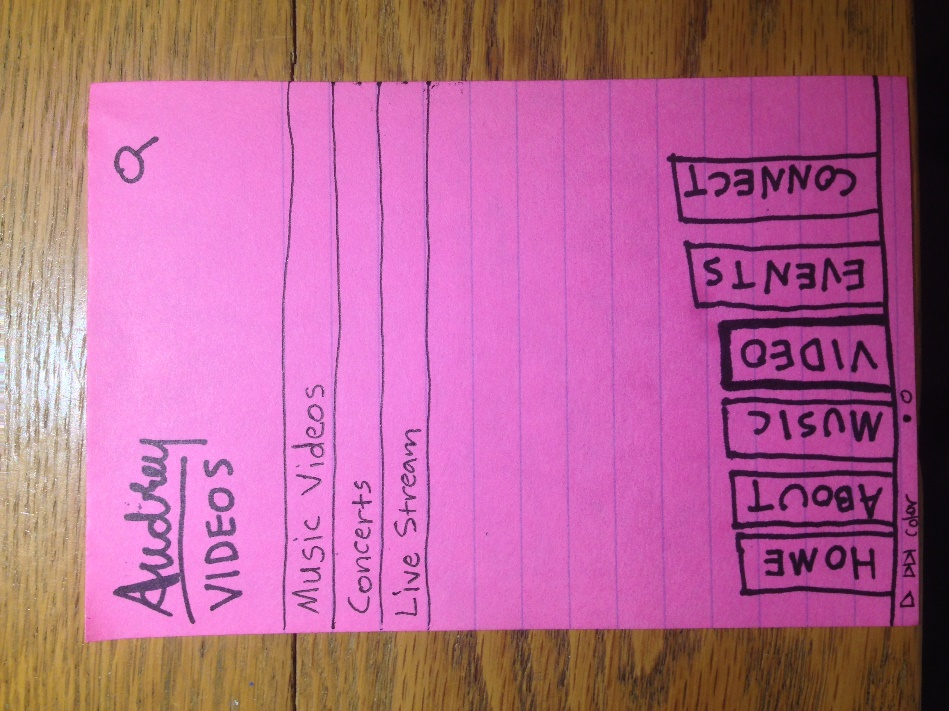 Audrey
VIDEOS
Music Videos
Concerts
Live Stream
HOME
ABOUT
MUSIC
VIDEO
EVENTS
CONNECT
Color